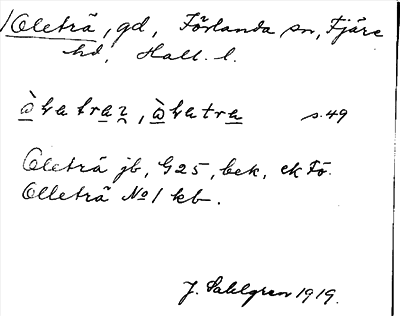 Oleträ, gd, Förlanda sn, Fjäre
hd, Hall. l.
s. 49
Oleträ jb, G25, bek, ek Fö.
Olleträ No 1 kb.
J. Sahlgren 1919.